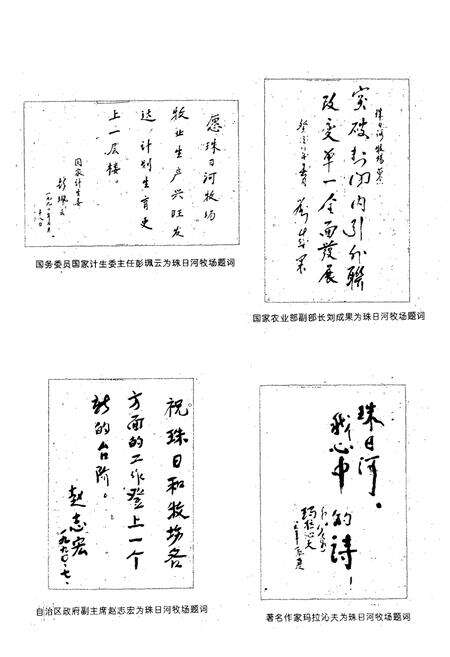 愿珠日河牧场
牧业生产兴旺发
达，计划生育更
上一层楼。
国家计生委
彭珮云
国务委员国家计生委主任彭珮云为珠日河牧场题词
珠日河牧场
突破封闭内引外联
改变单一全面发展
刘成果
国家农业部副部长刘成果为珠日河牧场题词
祝珠日和牧场各
方面的工作登上一个
新的台阶。
赵志宏
一九九〇.七.
自治区政府副主席赵志宏为珠日河牧场题词
珠日河，
我心中
的诗！
玛拉沁夫
著名作家玛拉沁夫为珠日河牧场题词